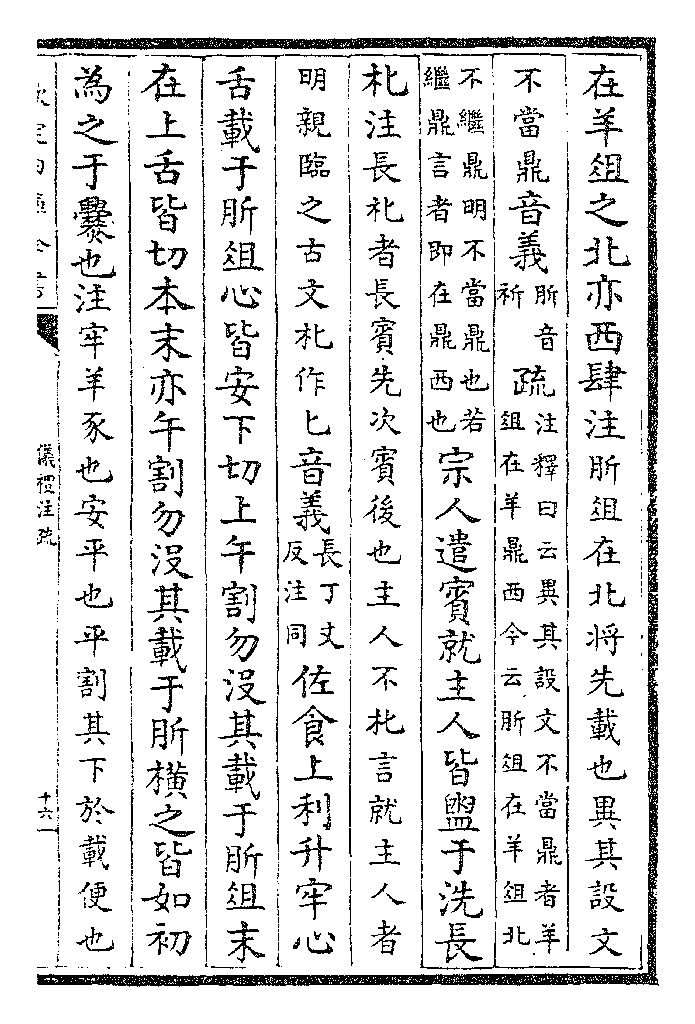 在羊俎之北亦西肆注肵俎在北將先載也異其設文
不當鼎音義肵音祈疏注釋曰云異其設文不當鼎者羊俎在羊鼎西今云肵俎在羊俎北
不繼鼎明不當鼎也若繼鼎言者即在鼎西也宗人遣賓就主人皆盥于洗長
朼注長朼者長賓先次賓後也主人不朼言就主人者
明親臨之古文朼作匕音義長丁丈反注同佐食上利升牢心
舌載于肵俎心皆安下切上午割勿沒其載于肵俎末
在上舌皆切本末亦午割勿沒其載于肵橫之皆如初
為之于爨也注牢羊豕也安平也平割其下於載便也
欽定四庫全書
儀禮注疏
十六